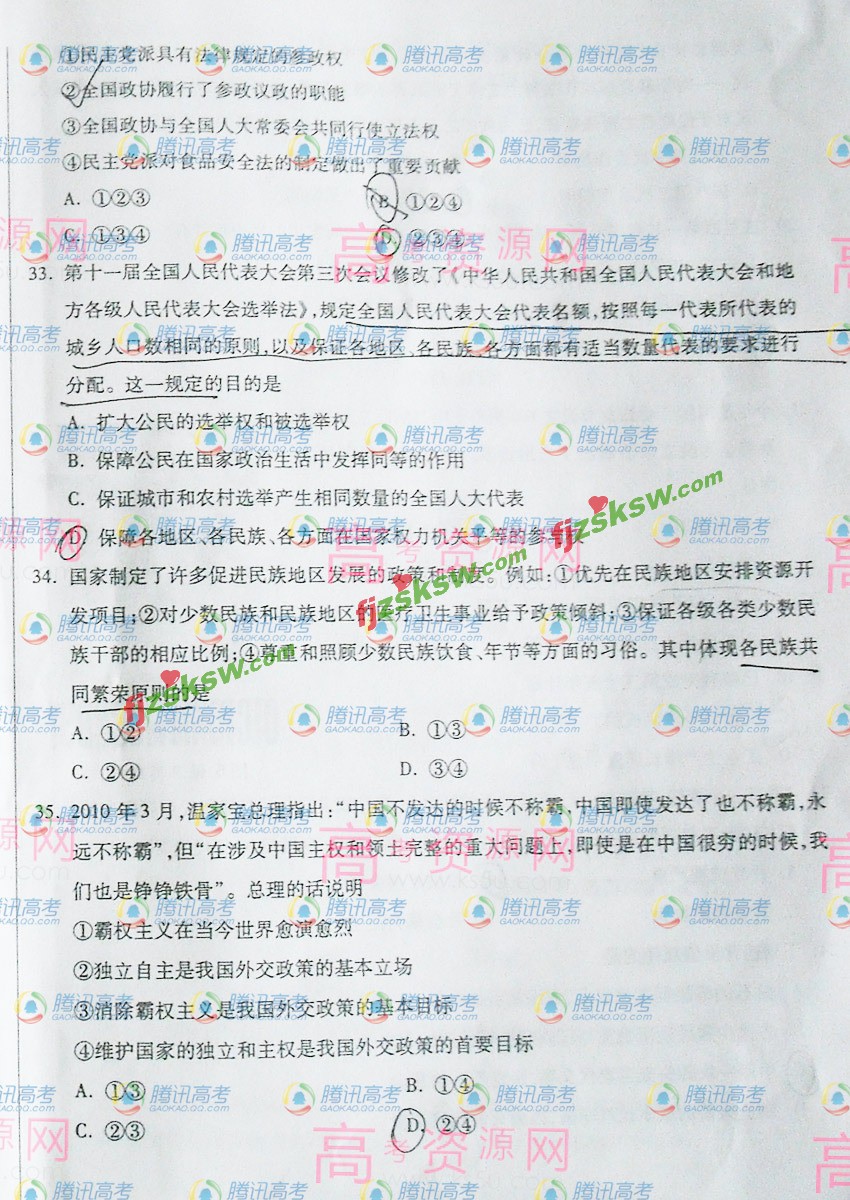 ①民主党派具有法律规定的参政权
②全国政协履行了参政议政的职能
③全国政协与全国人大常委会共同行使立法权
④民主党派对食品安全法的制定做出了重要贡献
A. ①②③ B. ①②④
C. ①③④ D. ②③④
33. 第十一届全国人民代表大会第三次会议修改了《中华人民共和国全国人民代表大会和地
方各级人民代表大会选举法》，规定全国人民代表大会代表名额，按照每一代表所代表的
城乡人口数相同的原则，以及保证各地区、各民族、各方面都有适当数量代表的要求进行
分配。这一规定的目的是
A. 扩大公民的选举权和被选举权
B. 保障公民在国家政治生活中发挥同等的作用
C. 保证城市和农村选举产生相同数量的全国人大代表
D. 保障各地区、各民族、各方面在国家权力机关平等的参与权
34. 国家制定了许多促进民族地区发展的政策和制度。例如：①优先在民族地区安排资源开
发项目；②对少数民族和民族地区的医疗卫生事业给予政策倾斜；③保证各级各类少数民
族干部的相应比例；④尊重和照顾少数民族饮食、年节等方面的习俗。其中体现各民族共
同繁荣原则的是
A. ①② B. ①③
C. ②④ D. ③④
35. 2010 年 3 月，温家宝总理指出：“中国不发达的时候不称霸，中国即使发达了也不称霸，永
远不称霸”，但“在涉及中国主权和领土完整的重大问题上，即使是在中国很穷的时候，我
们也是铮铮铁骨”。总理的话说明
①霸权主义在当今世界愈演愈烈
②独立自主是我国外交政策的基本立场
③消除霸权主义是我国外交政策的基本目标
④维护国家的独立和主权是我国外交政策的首要目标
A. ①③ B. ①④
C. ②③ D. ②④
腾讯高考
GAOKAO.QQ.COM
高考资源网
fjzsksw.com